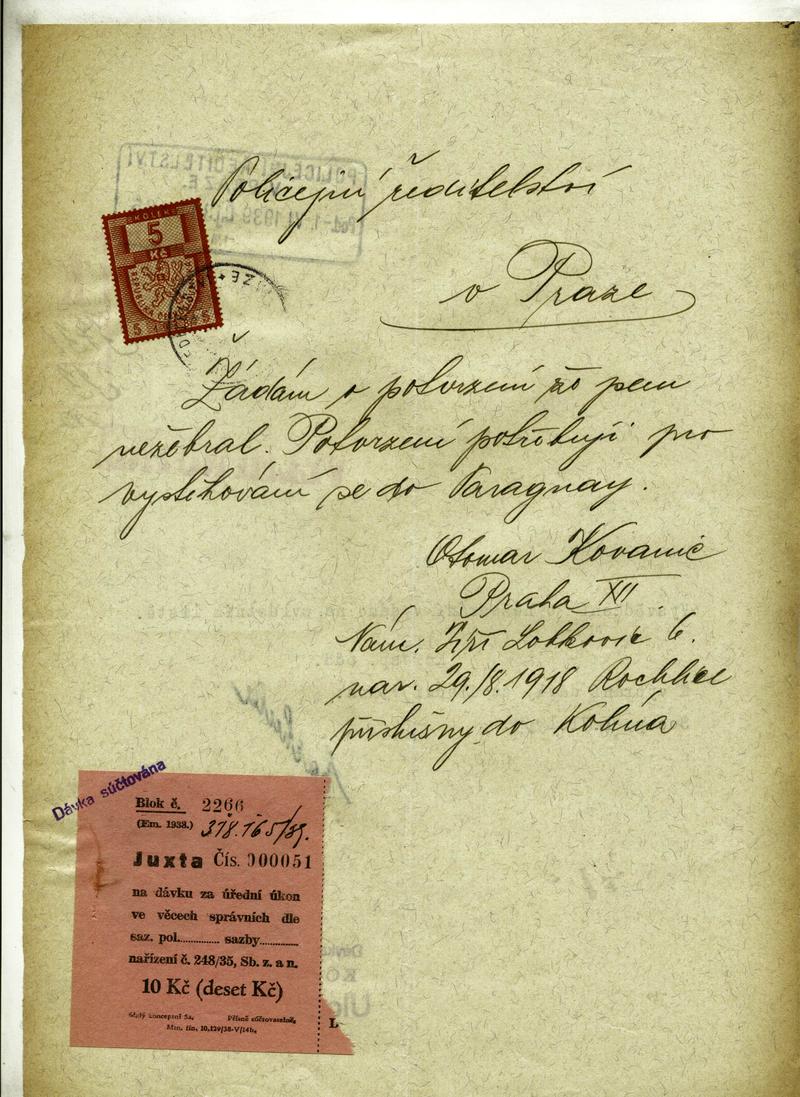 Policejní ředitelství
v Praze
KOLEK
5
Kč
5 5
Žádám o potvrzení že jsem
nežebral. Potvrzení potřebuji pro
vystěhování se do Paraguay.
Otomar Kovanic
Praha XII
Nám. Jiří Lobkovic 6.
nar. 29./8.1918 Rochlice
příslušný do Kolína
Dávka súčtována
Blok č. 2266
(Em. 1938.) 378.165/39.
Juxta Čís. 000051
na dávku za úřední úkon
ve věcech správních dle
saz. pol.............. sazby............
nařízení č. 248/35, Sb. z. a n.
10 Kč (deset Kč)
Přísně súčtovatelné.
Min. fin. 10,129/38-V/14b.